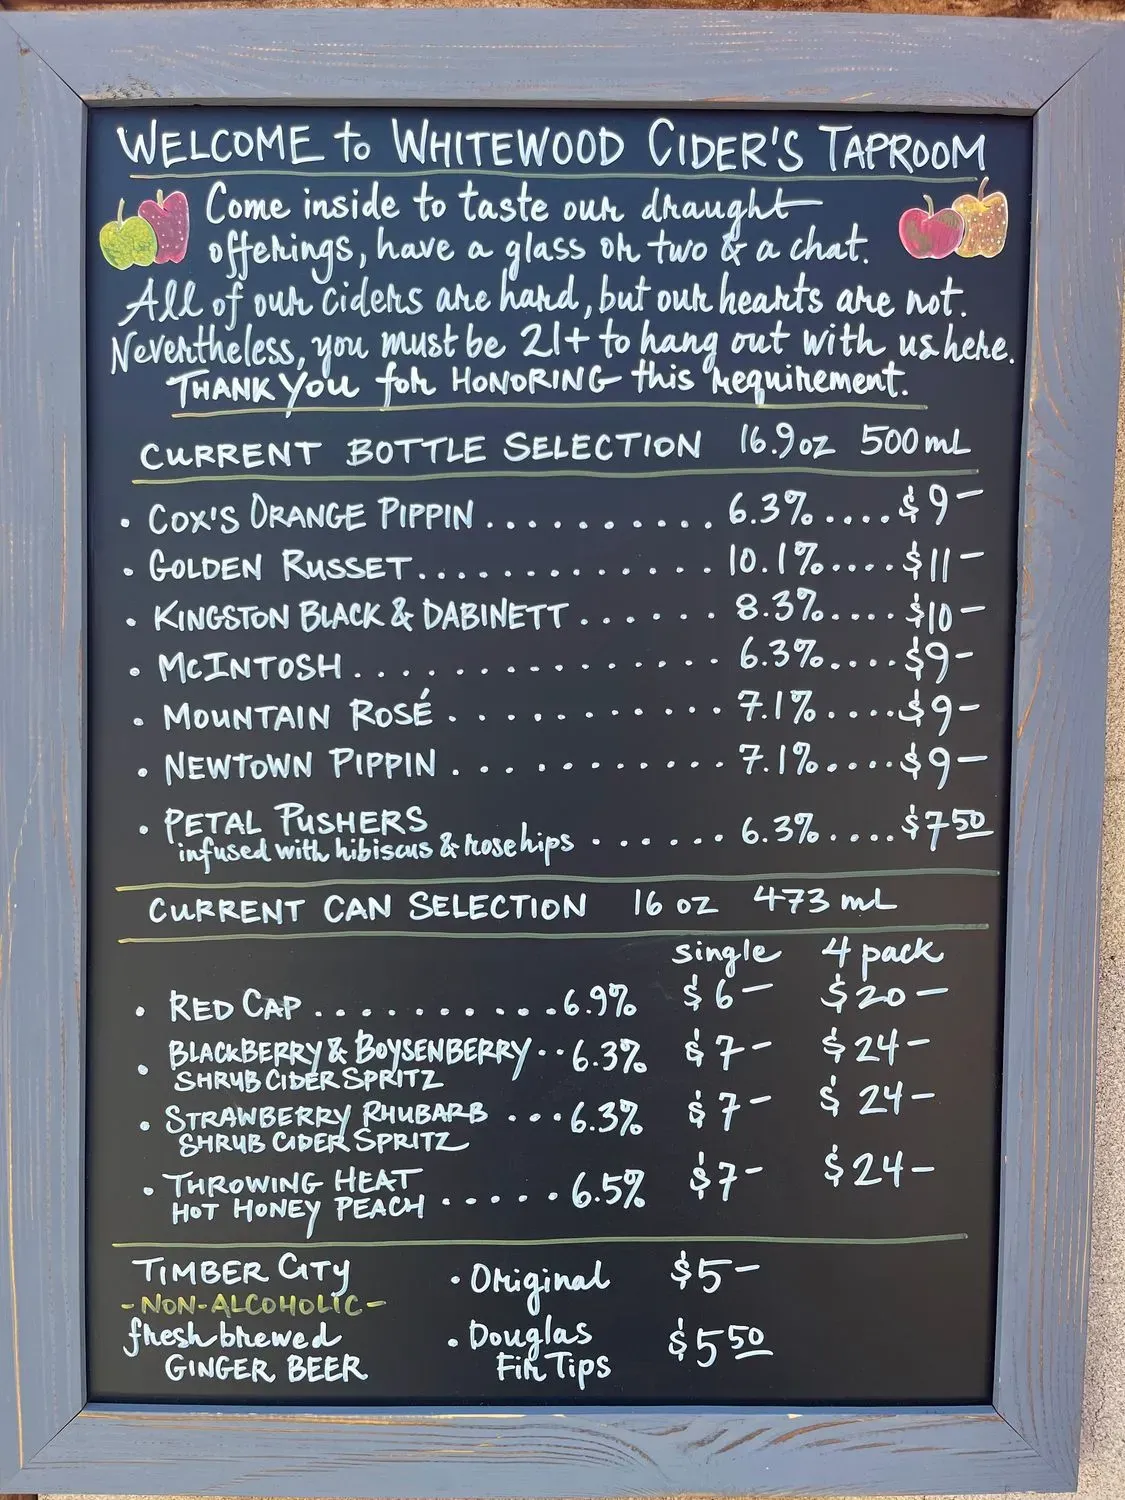 WELCOME to WHITEWOOD CIDER'S TAPROOM
Come inside to taste our draught
offerings, have a glass or two & a chat.
All of our ciders are hard, but our hearts are not.
Nevertheless, you must be 21+ to hang out with us here.
THANK YOU for HONORING this requirement.
CURRENT BOTTLE SELECTION 16.9oz 500mL
• COX'S ORANGE PIPPIN .......... 6.3%.... $9-
• GOLDEN RUSSET............. 10.1%.... $11-
• KINGSTON BLACK & DABINETT ...... 8.3%.... $10-
• MCINTOSH .............. 6.3%.... $9-
• MOUNTAIN ROSÉ ............ 7.1%.... $9-
• NEWTOWN PIPPIN ........... 7.1%.... $9-
• PETAL PUSHERS
infused with hibiscus & rosehips ...... 6.3%.... $7.50
CURRENT CAN SELECTION 16 oz 473 mL
single 4 pack
• RED CAP ........... 6.9% $6- $20-
• BLACKBERRY & BOYSENBERRY .. 6.3% $7- $24-
SHRUB CIDER SPRITZ
• STRAWBERRY RHUBARB ... 6.3% $7- $24-
SHRUB CIDER SPRITZ
• THROWING HEAT
HOT HONEY PEACH ..... 6.5% $7- $24-
TIMBER CITY • Original $5-
-NON-ALCOHOLIC-
fresh brewed • Douglas $5 50
GINGER BEER Fir Tips